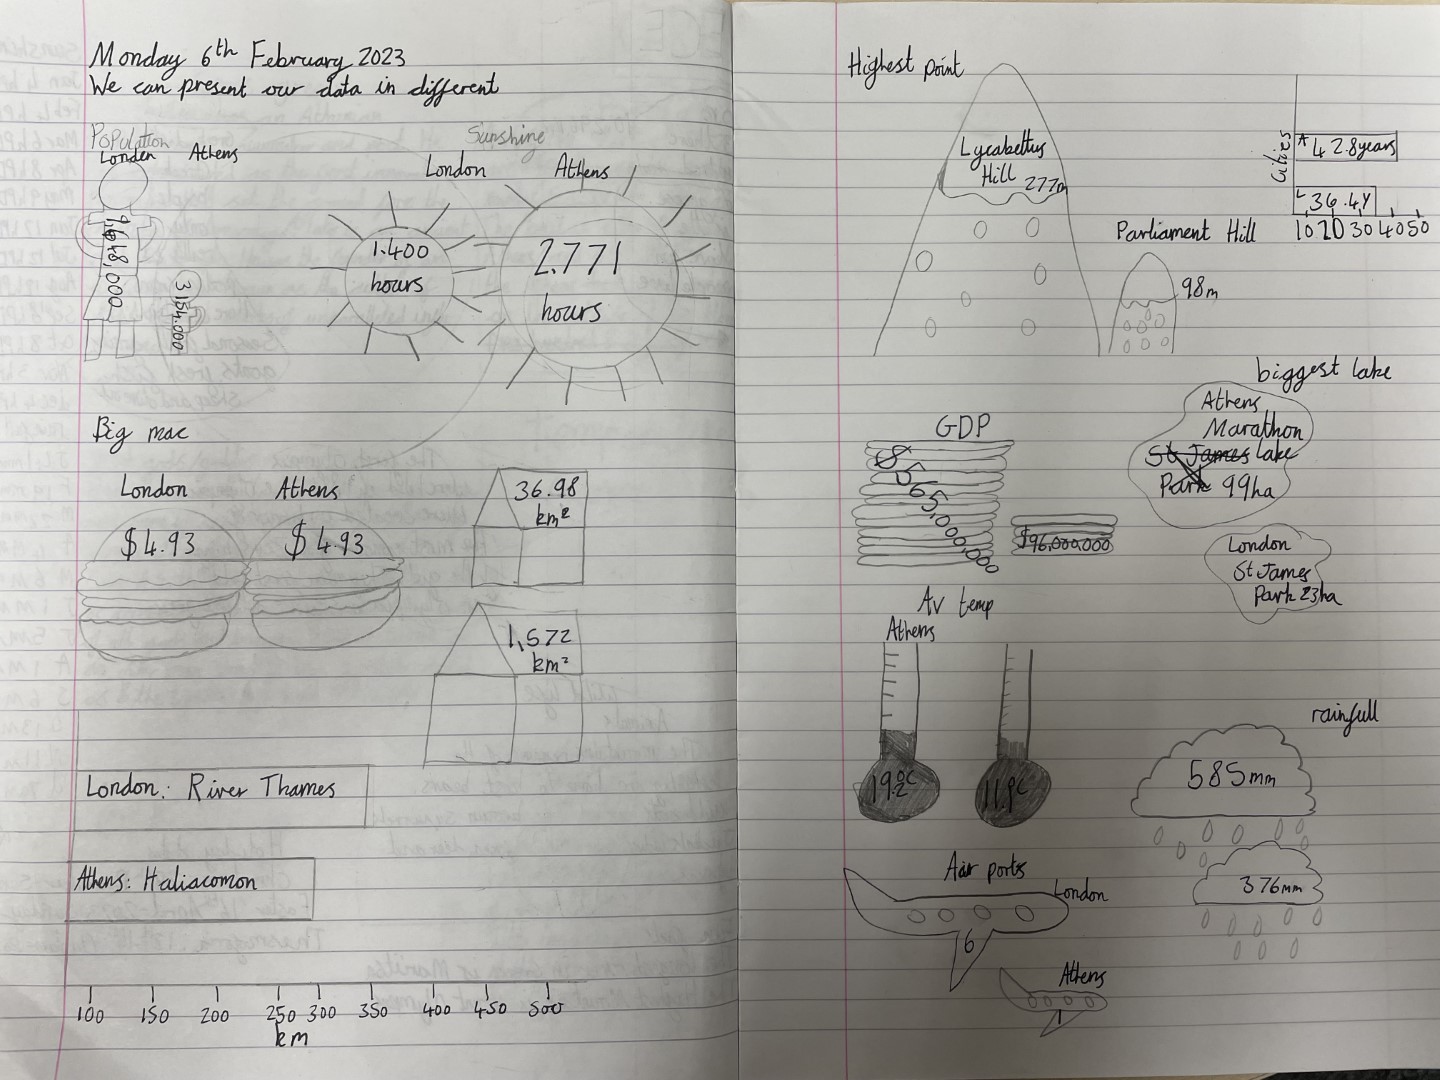 Monday 6th February 2023
We can present our data in different
Population
London
Athens
9,648,000
3,154,000
Sunshine
London
Athens
1.400
hours
2.771
hours
Big mac
London
Athens
$4.93
$4.93
36.98
km²
1,572
km²
London: River Thames
Athens: Haliacomon
100 150 200 250 300 350 400 450 500
km
Highest point
Lycabettus
Hill 277m
Parliament Hill
98m
Cities
A 42.8years
L 36.4y
10 20 30 40 50
biggest lake
Athens
Marathon
St James lake
Park 99ha
London
St James
Park 23ha
GDP
$565,000,000
$96,000,000
Av temp
Athens
19.2°C
11.9°C
rainfull
585mm
376mm
Air ports
London
6
Athens
1